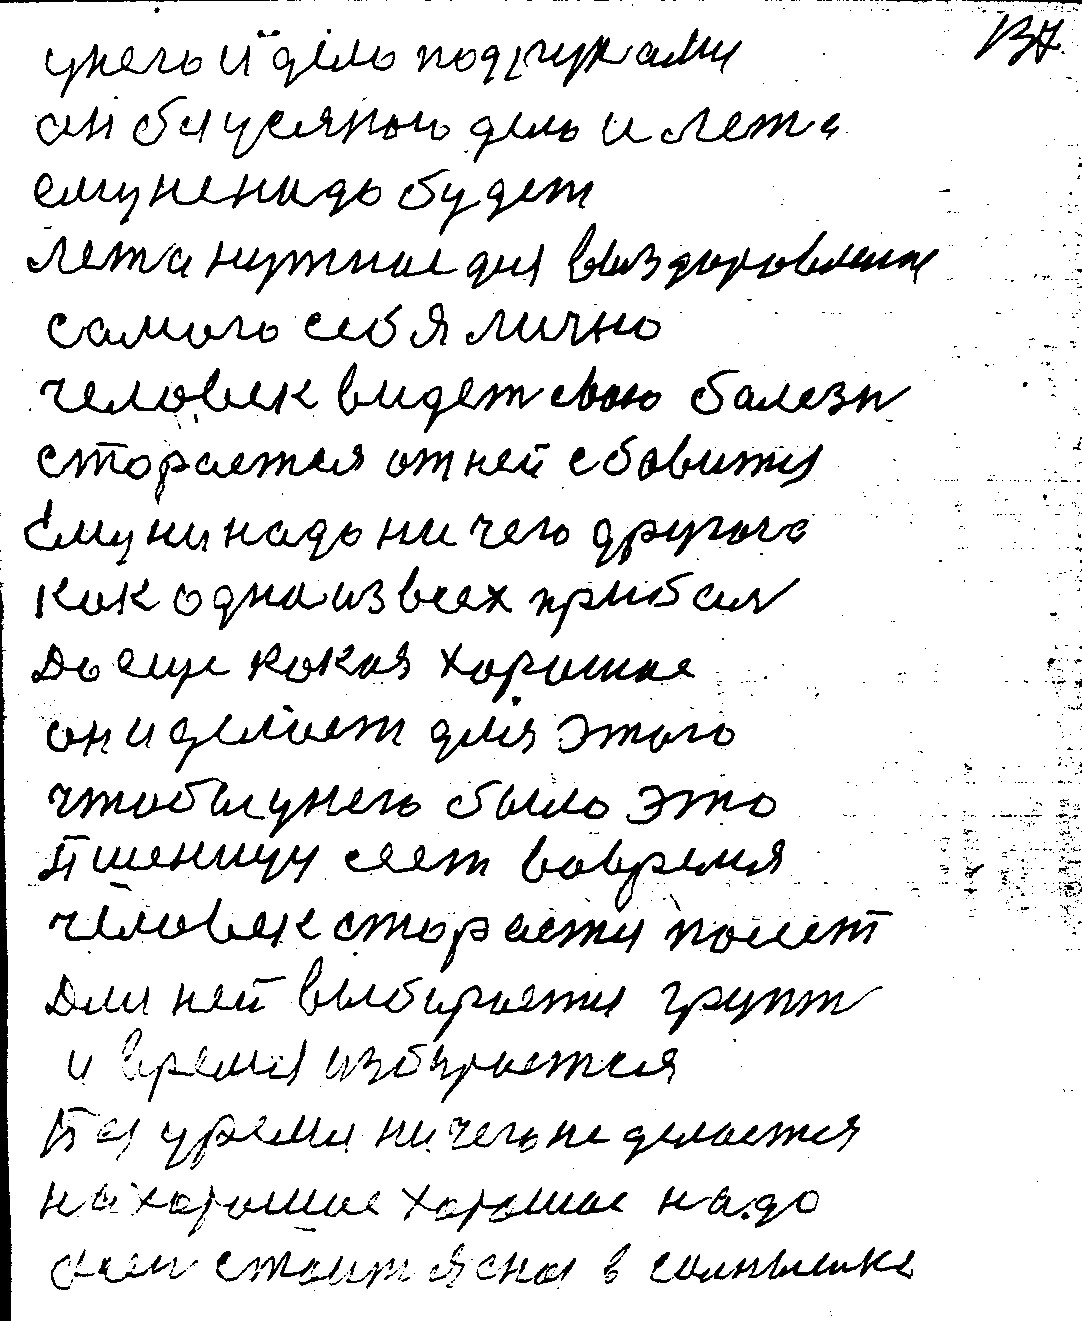 137
унего и дело подруками
он без усякого дело и лета
ему ненадо будет
лета нужнае для выздоровления
самого себя лично
человек видет свою болезн
сторается отней сбавится
Ему ни надо ни чего другого
как одна из всех прибыл
до еще какая хорошае
он и делает для этого
чтобы унего было это
Пшеницу сеет вовремя
человек сторается полет
Для ней выбирается грунт
и время избирается
без уремя ни чего не делается
на хорошае хорошае надо
стоит ясная в солнышке